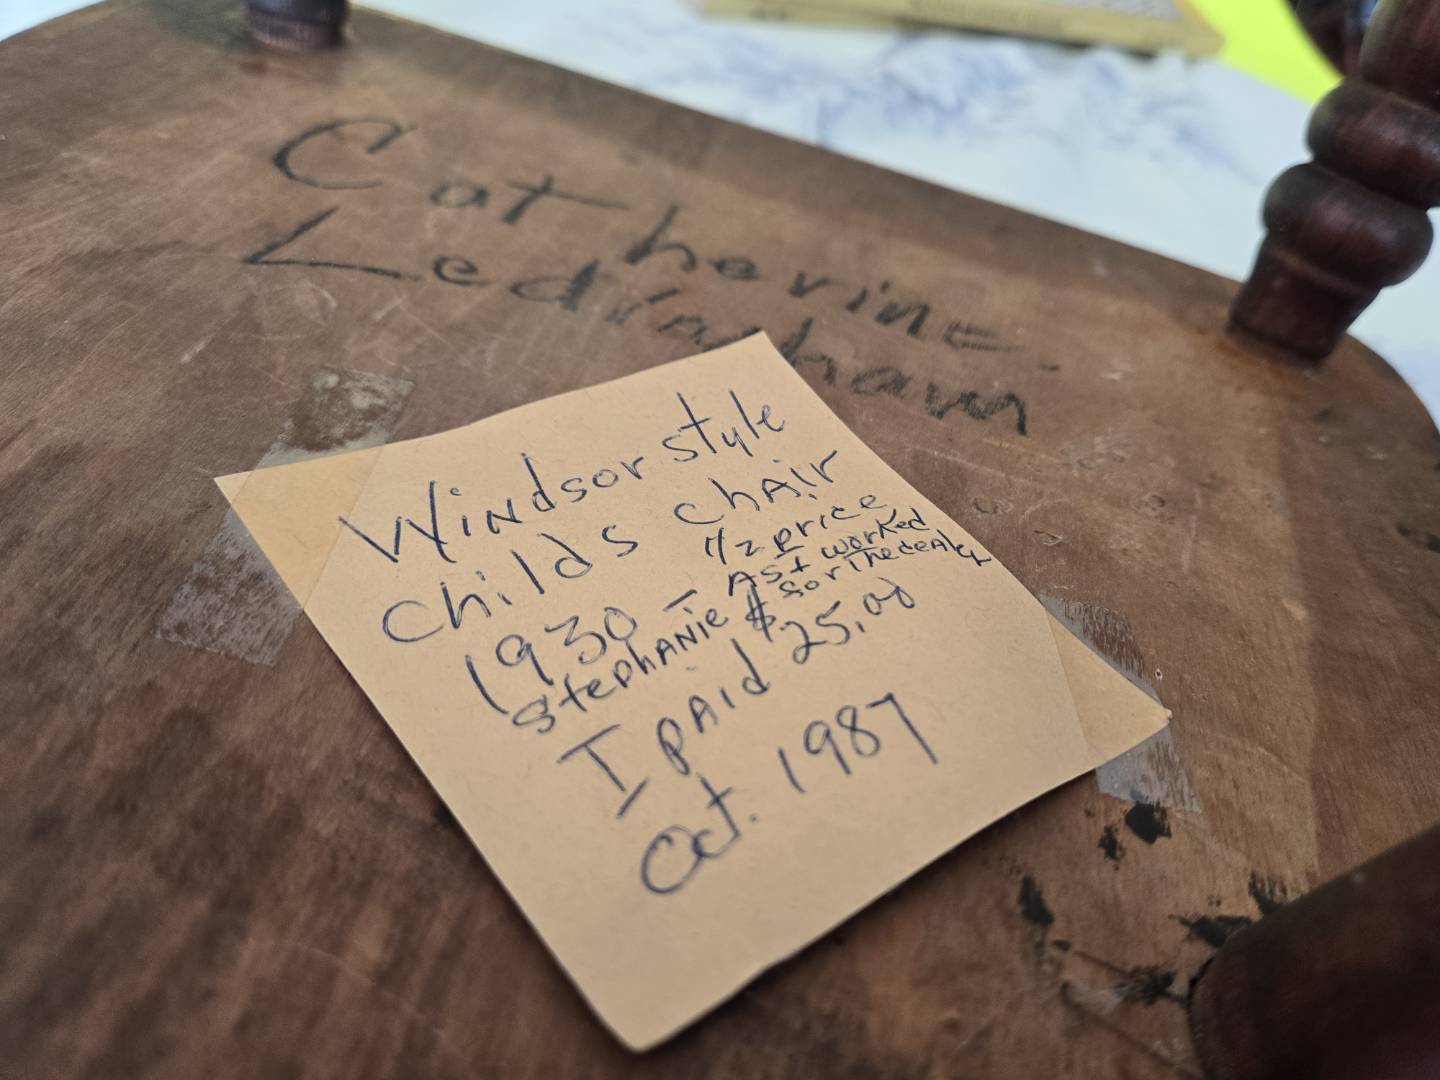 Catherine
Ledingham
Windsor style
childs chAir
1930 - 1/2 price
Stephanie AST worked
for The deAler
I pAid $25.00
Oct. 1987